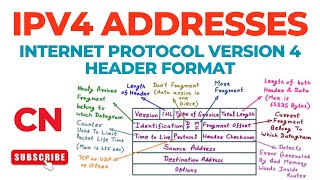 IPV4 ADDRESSES
INTERNET PROTOCOL VERSION 4
HEADER FORMAT
Newly Arrived
Fragment
belong to
which Datagram
Length
of Header
Don't Fragment
(data arrive in one
piece)
More
Fragment
Length of both
Header & Data
(Max is
65535 Bytes)
Version
IHL
Type of Service
Total Length
Identification
D
F
M
F
Fragment Offset
Time to Live
Protocol
Header Checksum
Source Address
Destination Address
Options
Counter
Used To Limit
Packet Life Time
(Max is 255 sec)
TCP or UDP
or Others
Current
Fragment
Belong To
Which Datagram
Detects
Error Generated
By Bad Memory
Words Inside
Router
CN
SUBSCRIBE